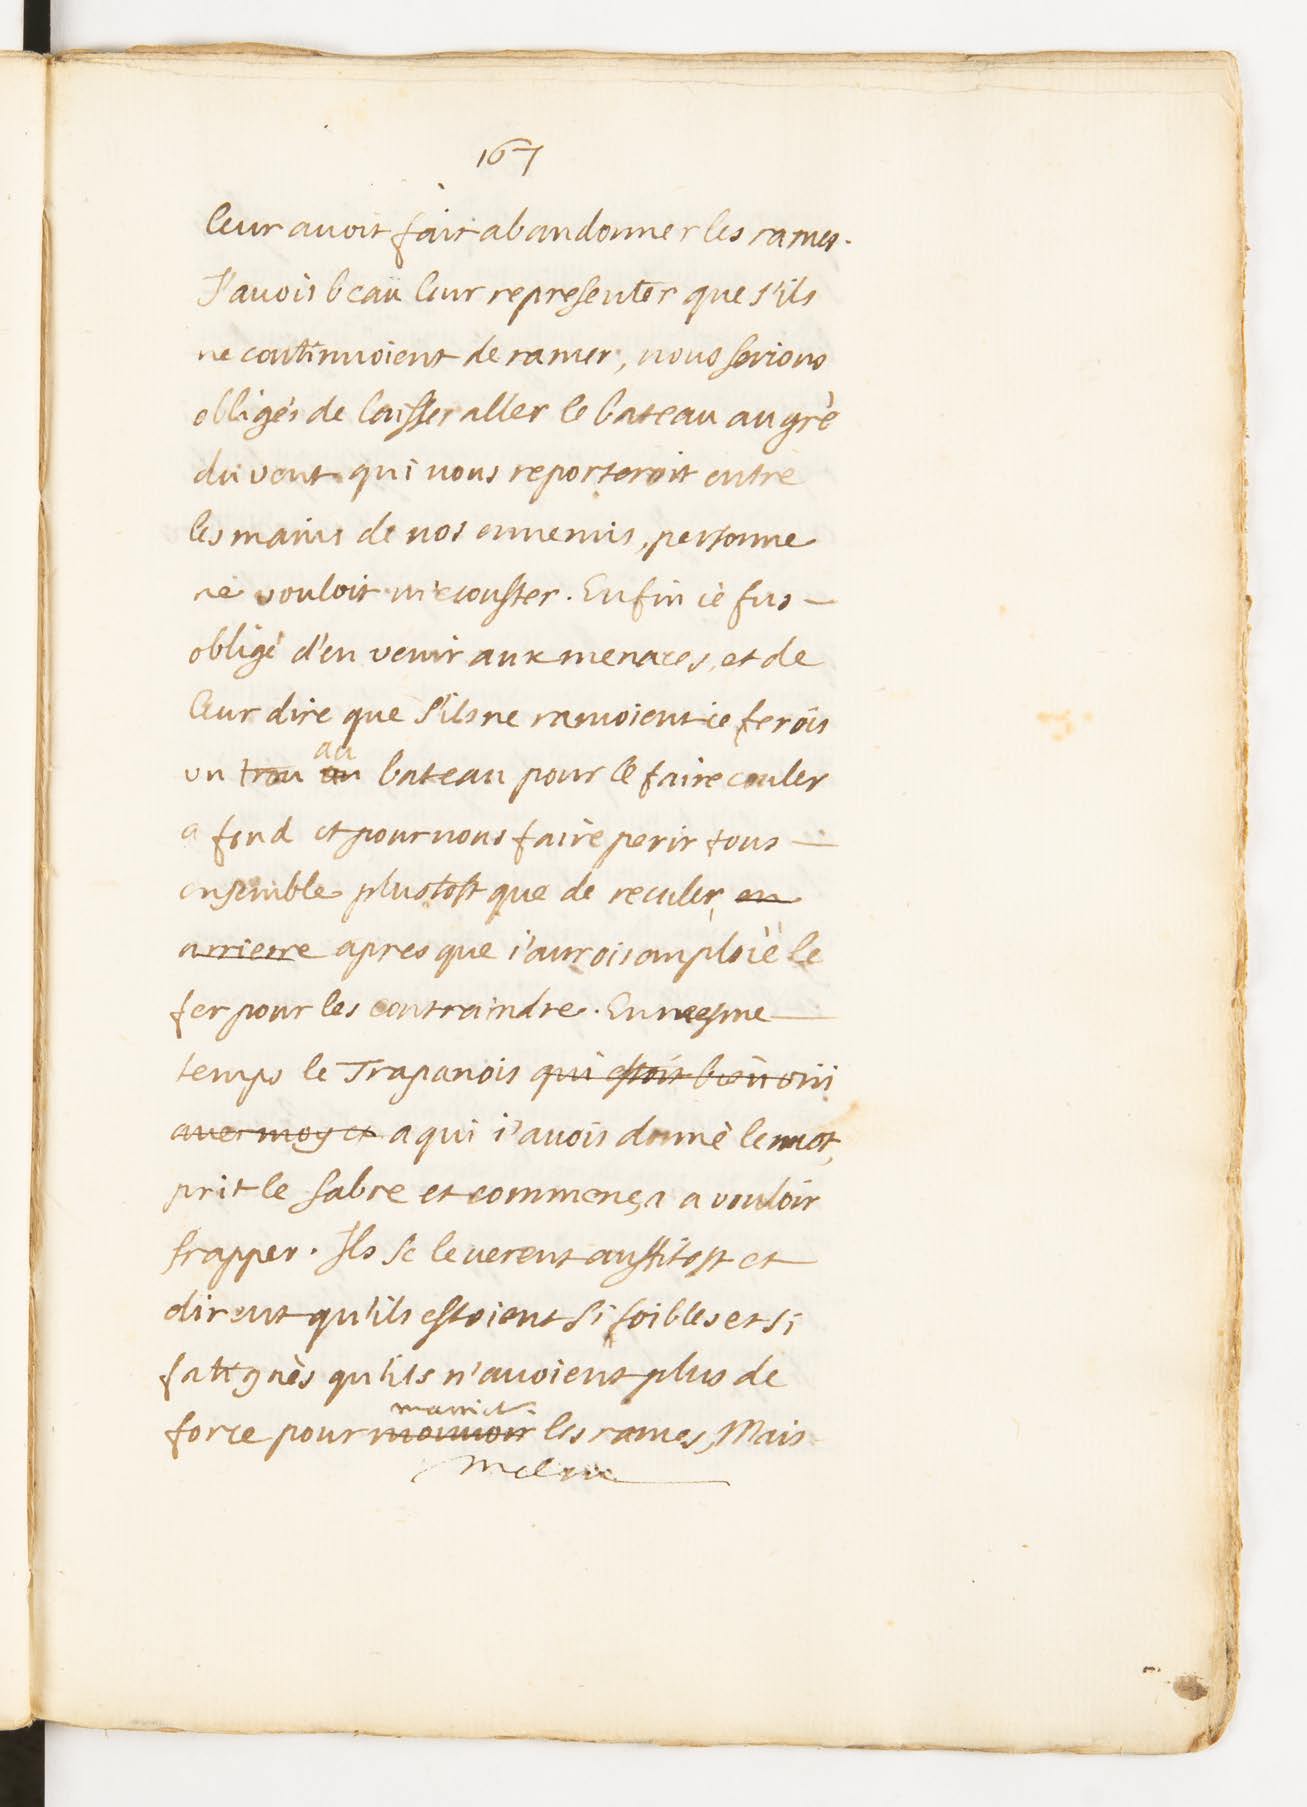 167
leur auoit fait abandonner les rames.
J'auois beau leur representer que s'ils
ne continuoient de ramer, nous serions
obligés de laisser aller le bateau au gré
du vent qui nous reporteroit entre
les mains de nos ennemis, personne
ne vouloit m'écouster. Enfin ie fus —
obligé d'en venir aux menaces, et de
leur dire que s'ils ne ramoient ie ferois
au
vn trou au bateau pour le faire couler
a fond et pour nous faire perir tous —
ensemble plustost que de reculer, en
arriere apres que i'aurois emploié le
fer pour les contraindre. En mesme —
temps le Trapanois qui estoit bien vni
auec moy et a qui i'auois donné le mot,
prit le sabre et commença a vouloir
frapper. Ils se leuerent aussitost et
dirent qu'ils estoient si foibles et si
fatigués qu'ils n'auoient plus de
manier
force pour mouuoir les rames, Mais